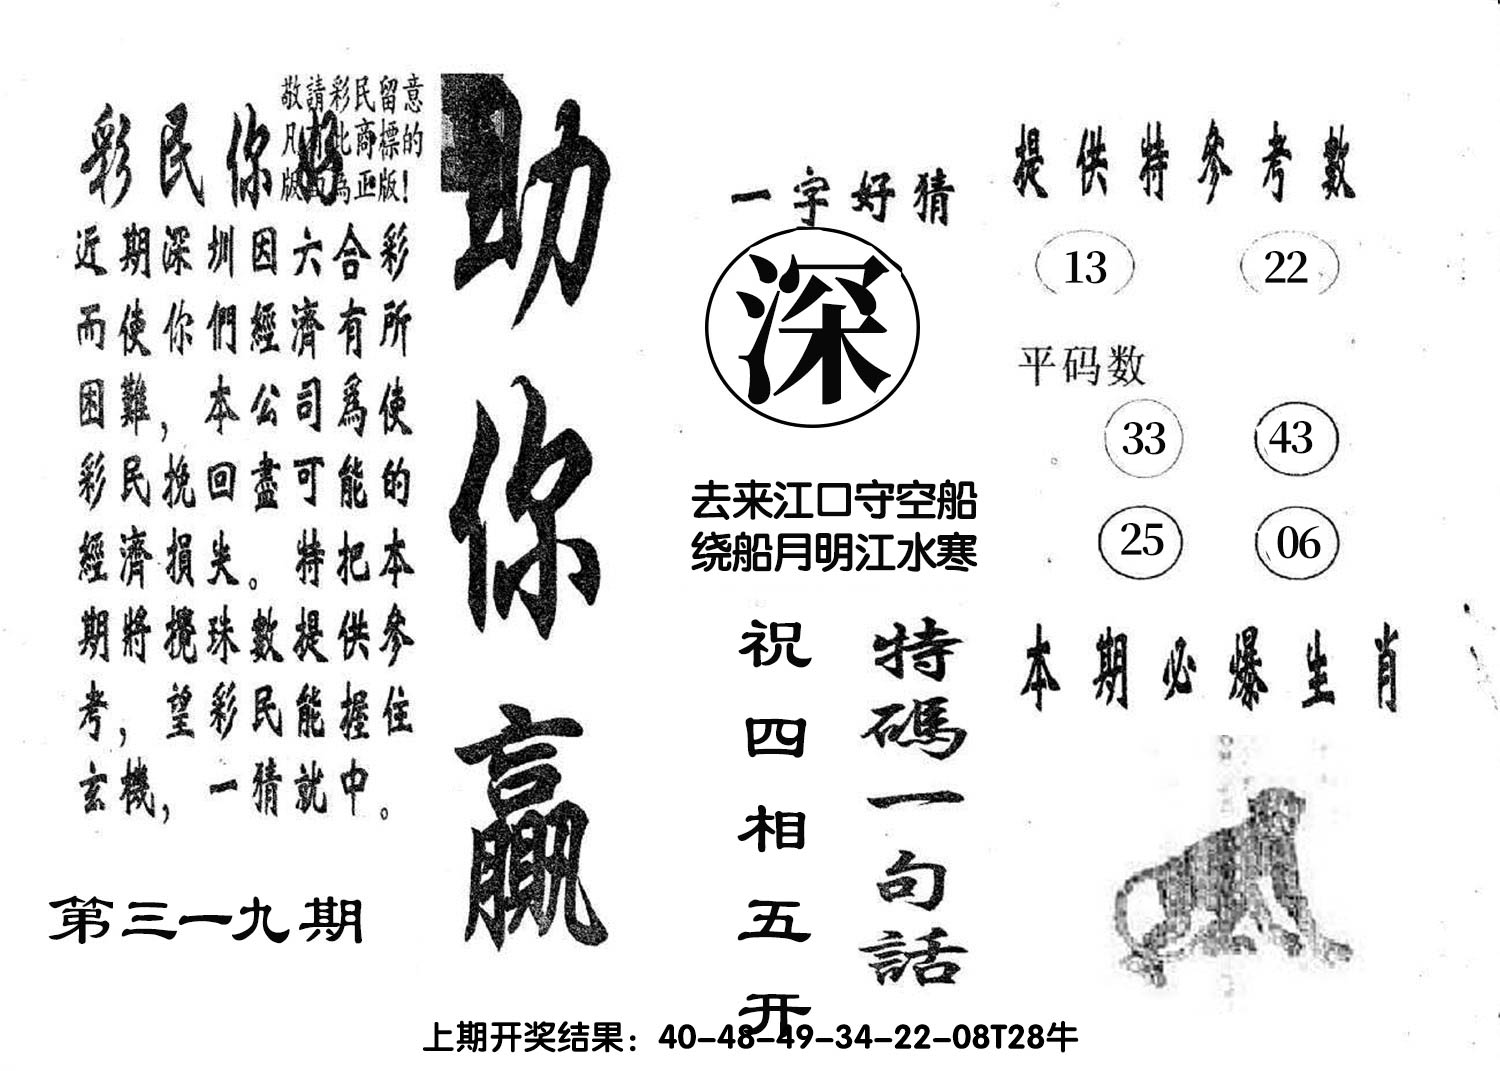 敬請彩民留意
凡有此商標的
版面為正版！
彩民你好
近期深圳因六合彩
而使你們經濟有所
困難，本公司爲使
彩民挽回盡可能的
經濟損失。特把本
期將攪珠數提供參
考，望彩民能握住
玄機，一猜就中。
第三一九期
助你贏
一字好猜
深
去来江口守空船
绕船月明江水寒
特碼一句話
祝四相五开
提供特參考數
13 22
平码数
33 43
25 06
本期必爆生肖
上期开奖结果：40-48-49-34-22-08T28牛